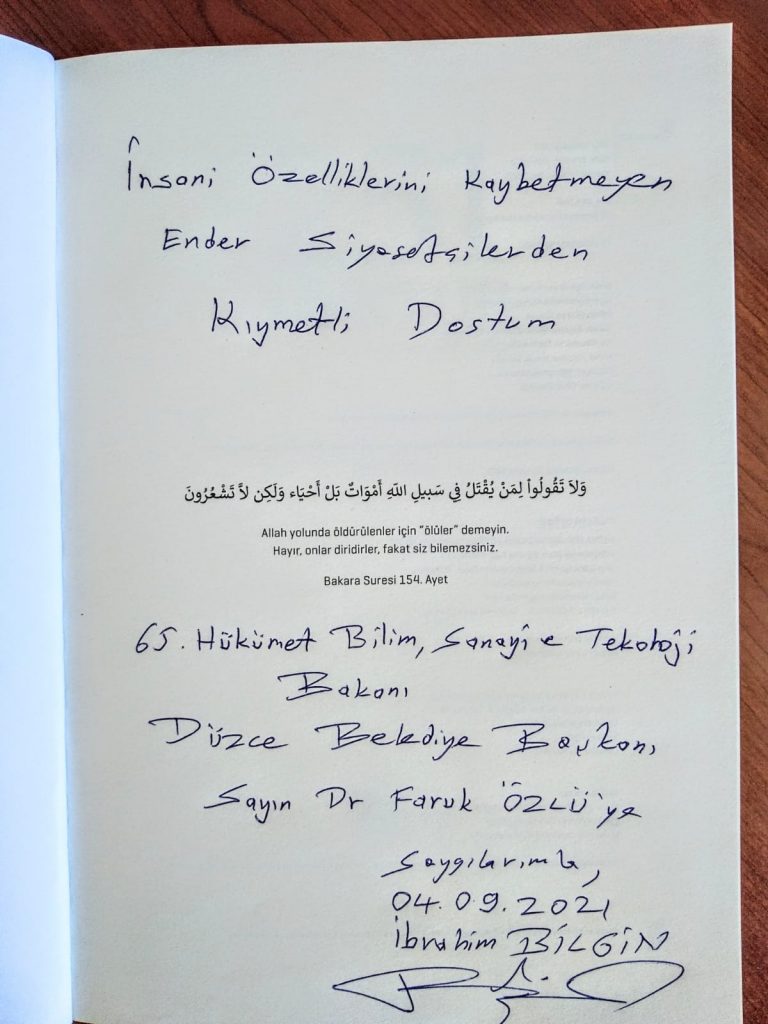 İnsani Özelliklerini Kaybetmeyen
Ender Siyasetçilerden
Kıymetli Dostum
وَلاَ تَقُولُواْ لِمَنْ يُقْتَلُ فِي سَبيلِ اللّهِ أَمْوَاتٌ بَلْ أَحْيَاء وَلَكِن لاَّ تَشْعُرُونَ
Allah yolunda öldürülenler için "ölüler" demeyin.
Hayır, onlar diridirler, fakat siz bilemezsiniz.
Bakara Suresi 154. Ayet
65. Hükümet Bilim, Sanayi e Tekoloji
Bakanı
Düzce Belediye Başkanı
Sayın Dr Faruk ÖZLÜ'ye
Saygılarımla,
04.09.2021
İbrahim BİLGİN